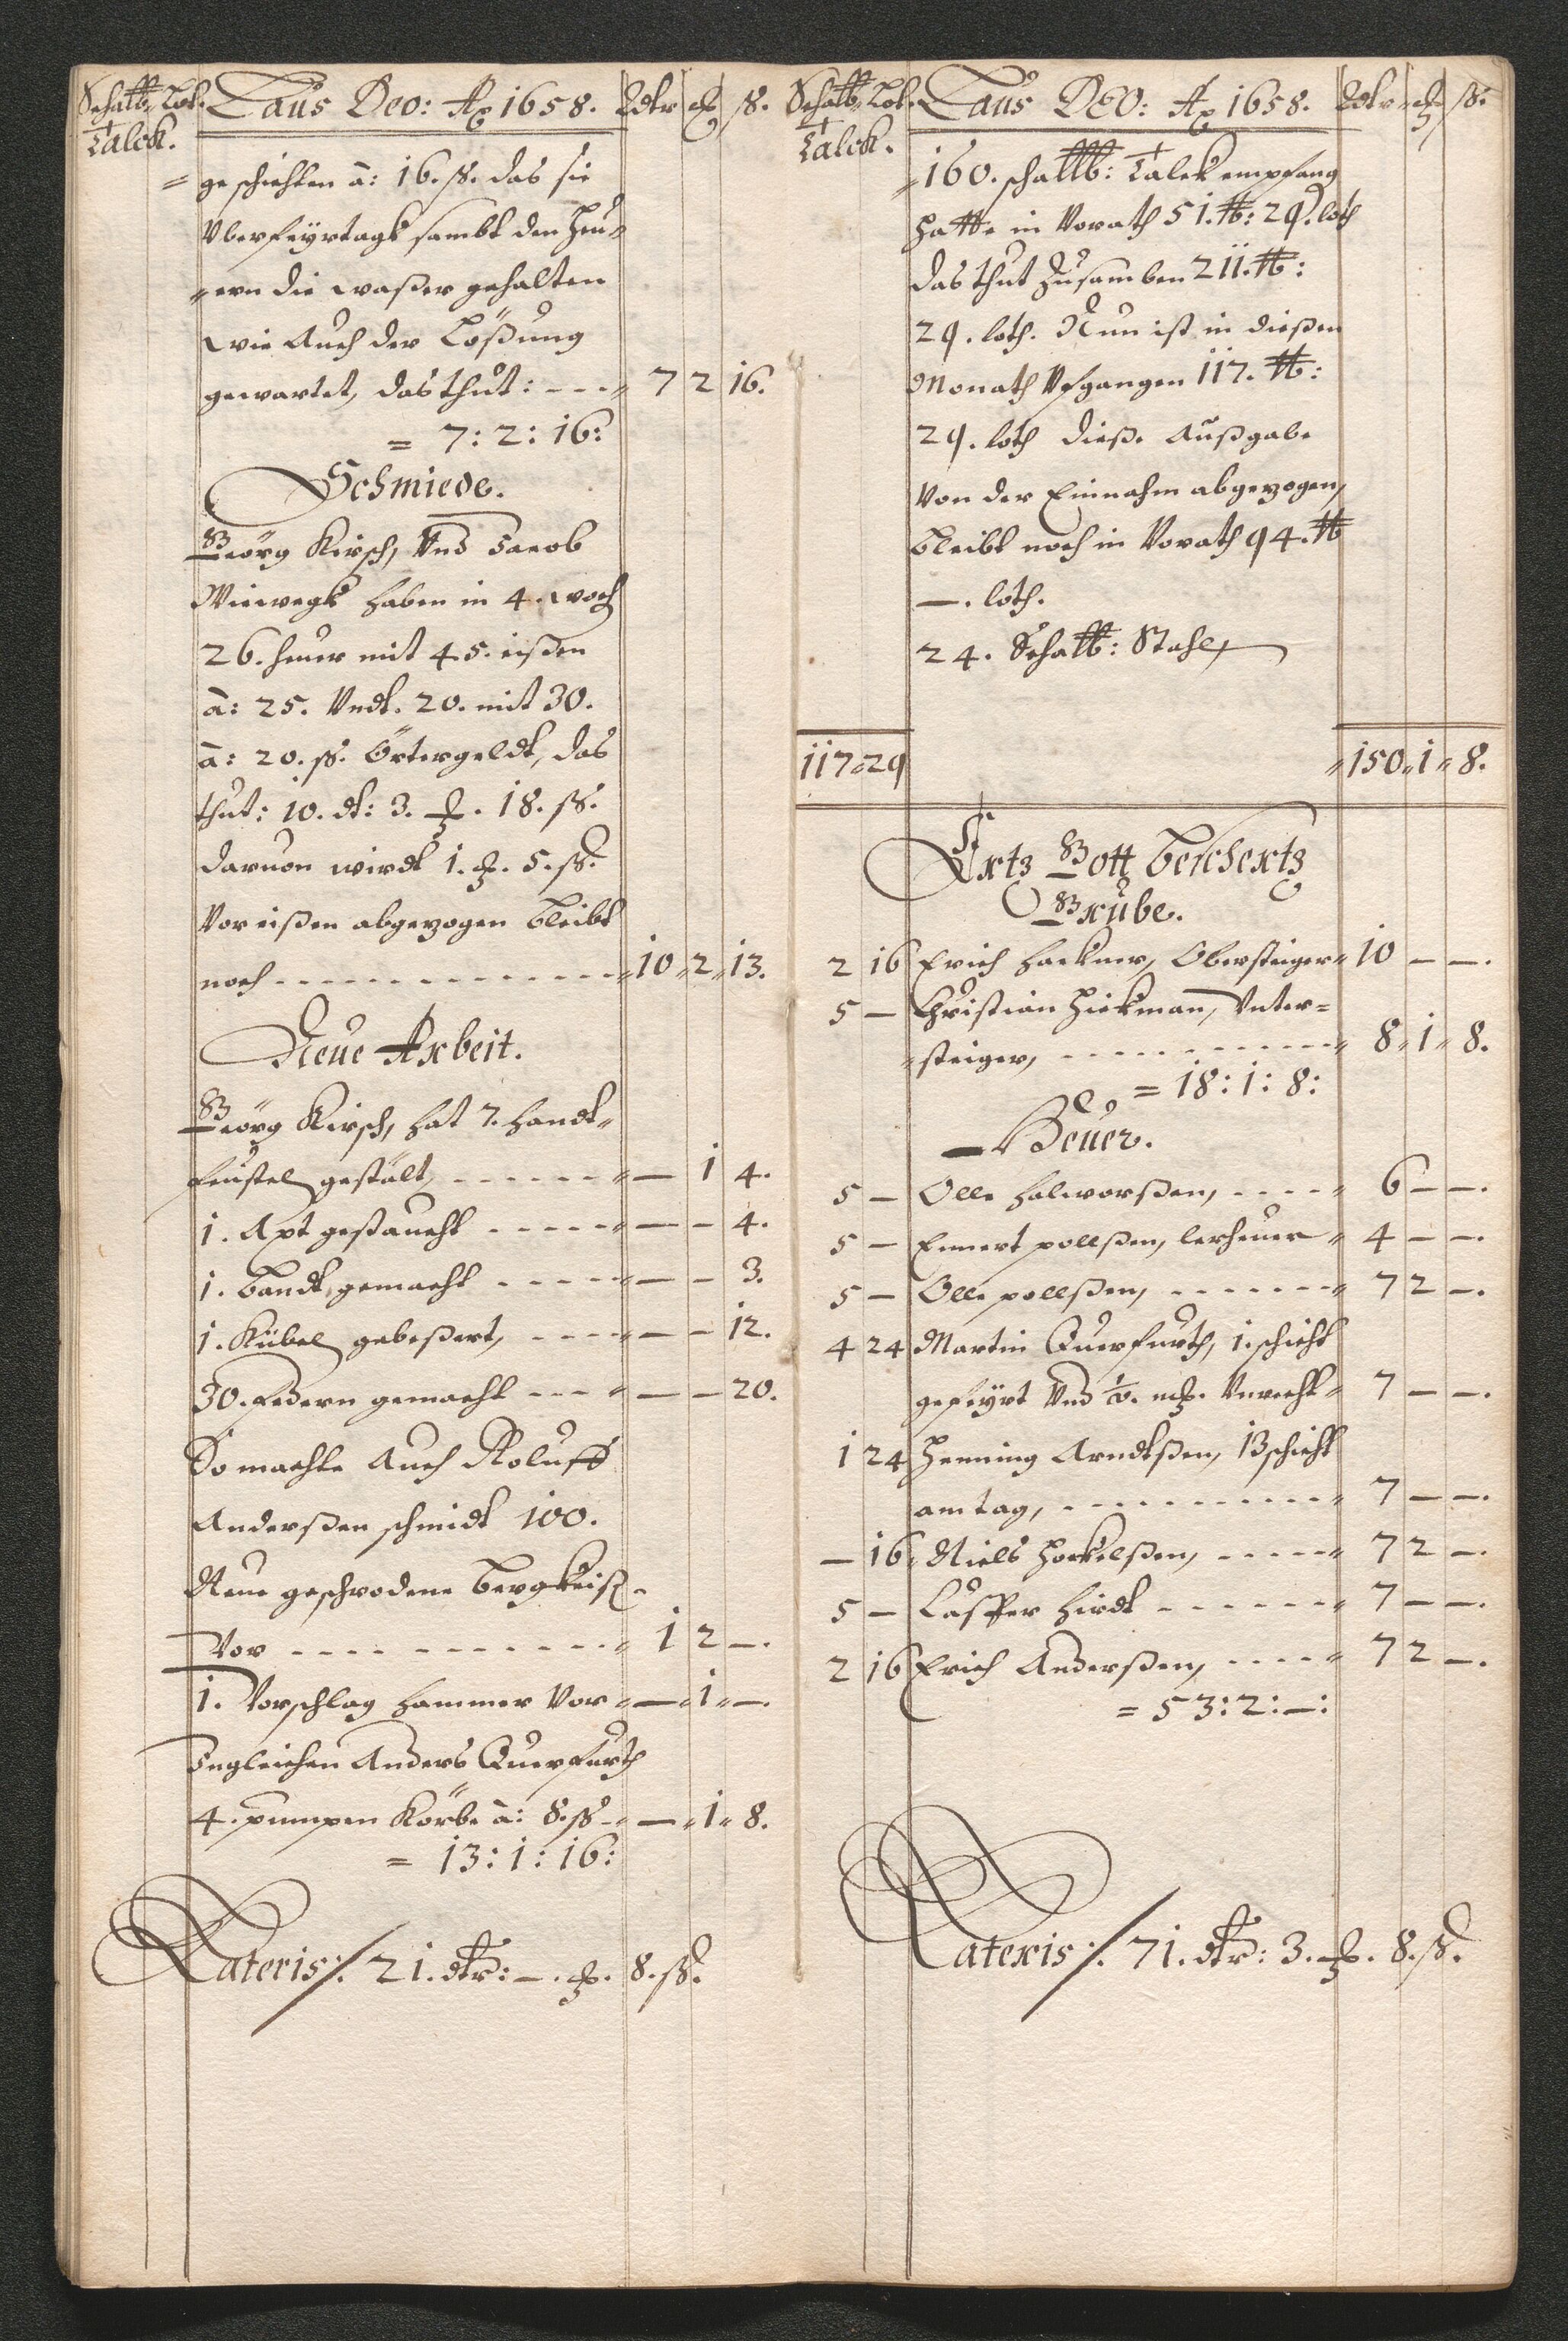 Schalb. Lot.
Talck.
Laus Deo: Ao 1658. Rdtr ß.
= geschichten â: 16. ß. das sie
Vberfeyrtags sambt den Heu=
=ern die waßer gehalten
wie Auch der Lößung
gewartet, das thut: --- 7 2 16.
= 7: 2: 16:
Schmiede.
Georg Kirsch, Vnd Jacob
haben in 4. woch
26. heuer mit 45. eißen
â: 25. Vndt. 20. mit 30.
â: 20. ß. Örtergeldt, das
thut: 10. dt: 3. 18. ß.
daruon wirdt 1. 5. ß.
Vor eißen abgezogen bleibt
noch ------------ 10 2 13.
Neue Arbeit.
Georg Kirsch, hat 7. handt=
feustel gestält, ------ — 1 4.
1. Axt gestaucht ----- — — 4.
1. bandt gemacht ----- — — 3.
1. Kübel gebeßert, ---- — — 12.
30. federn gemacht --- — — 20.
So machte Auch Roluff
Anderßen schmidt 100.
Neue geschrodene bergkeiß=
Vor ------------ 1 2 —.
1. Vorschlag hammer Vor — 1 —.
Ingleichen Anders Querfurth
4. pumpen Körbe â: 8. ß — 1 8.
= 13: 1: 16:
Lateris:/. 21. dtr: —. 8. ß.
Schalb. Lot.
Talck.
Laus DEO: Ao 1658. Rdtr ß.
160. schallb: Talck empfang
hatte in Vorath 51. lb: 29. loth
das thut Zusamben 211. lb:
29. loth. Nun ist in dießen
Monath Vfgangen 117. lb:
29. loth dieße Außgabe
Von der Einnahm abgezogen,
bleibt noch in Vorath 94. lb
—. loth.
24. Schalb: Stahl,
117 29 150 1 8.
Ertz Gott bescherts
Grube.
2 16 Erich hackner, Obersteiger 10 — —.
5 — Christian Hickman, Vnter=
=steiger, ------------ 8 1 8.
= 18: 1: 8:
Heuer.
5 — Olle halworßen, ---- 6 — —.
5 — Ennert pollßen, lerheuer 4 — —.
5 — Olle pollßen, ------- 7 2 —.
4 24 Martin Querfurth, 1. schicht
gefeyrt Vnd 7 — —.
1 24 Henning Arndtßen, 13 schicht
am tag, ------------ 7 — —.
— 16 Niels ----- 7 2 —.
5 — Casper hirdt ------ 7 — —.
2 16 Erich Anderßen, ---- 7 2 —.
= 53: 2: —:
Lateris:/. 71. dtr: 3. 8. ß.